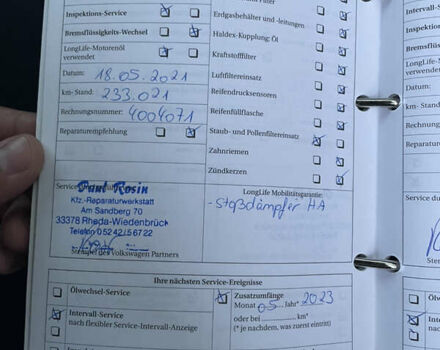 Inspektions-Service
Bremsflüssigkeits-Wechsel
LongLife-Motorenöl
verwendet
Datum: 18.05.2021
km- Stand: 233.021
Rechnungsnummer: 4004071
Reparaturempfehlung
Erdgasbehälter und -leitungen
Haldex-Kupplung: Öl
Kraftstofffilter
Luftfiltereinsatz
Reifendrucksensoren
Reifenfüllflasche
Staub- und Pollenfiltereinsatz
Zahnriemen
Zündkerzen
Paul Rosin
Kfz.-Reparaturwerkstatt
Am Sandberg 70
33378 Rheda-Wiedenbrück
Telefon 05242/56722
Stempel des Volkswagen Partners
LongLife Mobilitätsgarantie:
- Stoßdämpfer HA
Ihre nächsten Service-Ereignisse
Ölwechsel-Service
Intervall-Service
nach flexibler Service-Intervall-Anzeige
Zusatzumfänge
Monat 05 Jahr* 2023
oder bei km*
(* je nachdem, was zuerst eintritt)